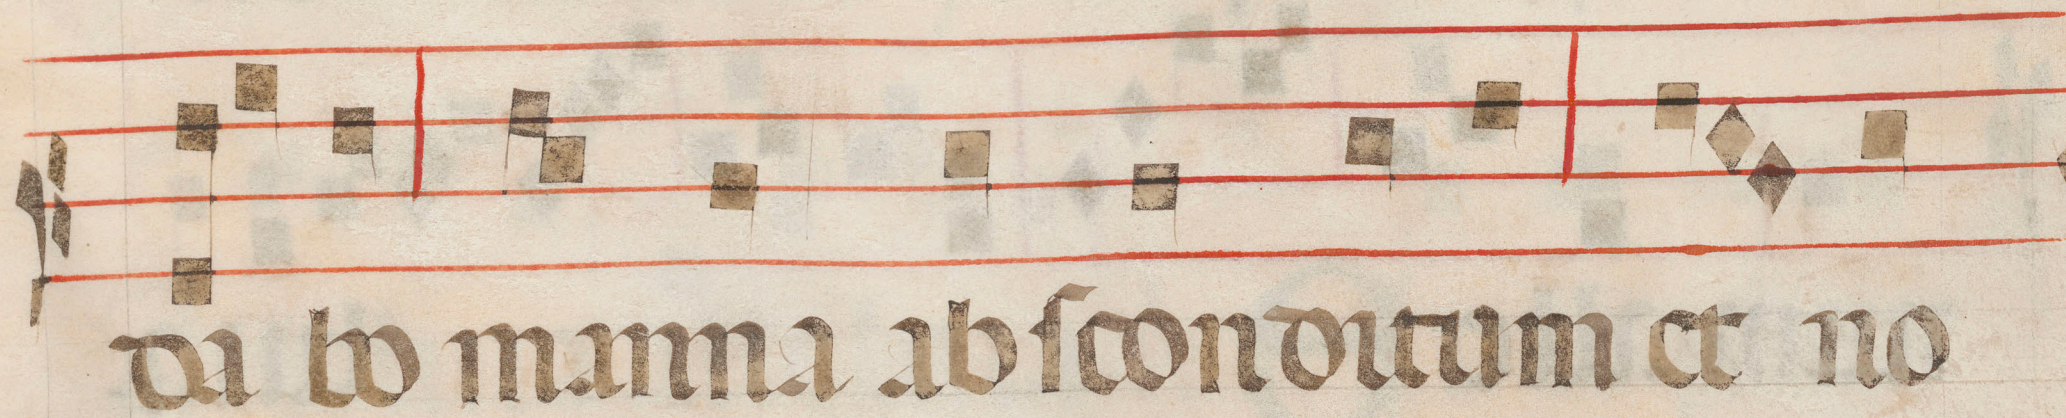 da bo manna abſconditum et no